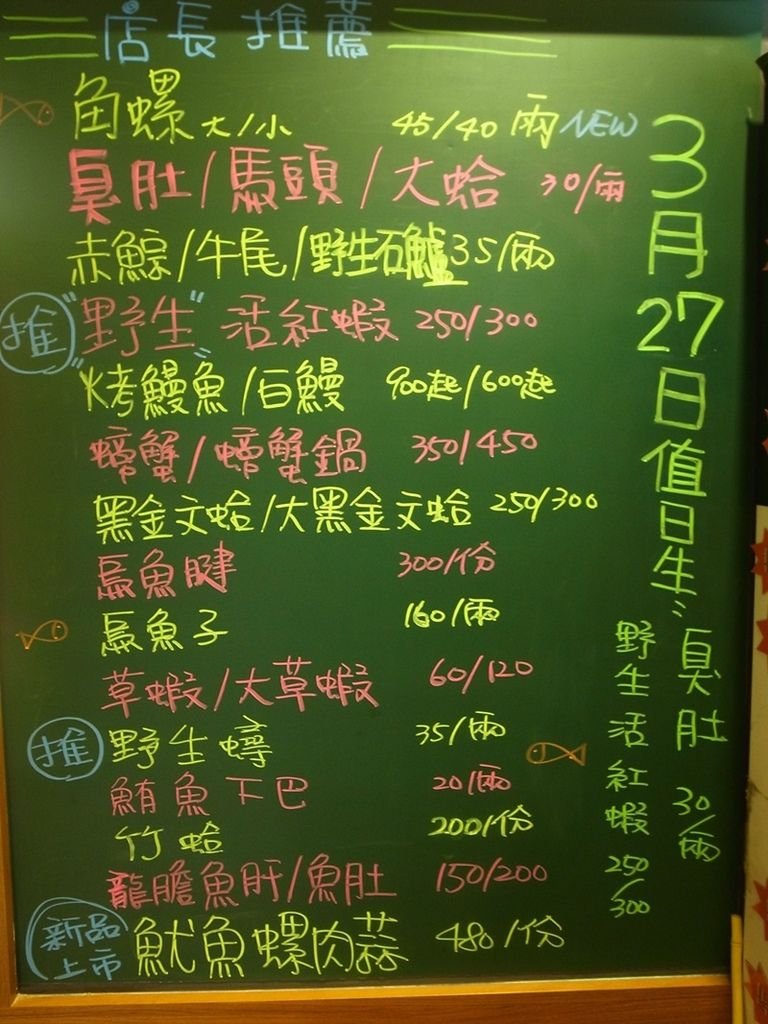 店長推薦
角螺大/小 45/40 兩 NEW
臭肚/馬頭/大蛤 30/兩
赤鯮/牛尾/野生石鱸 35/兩
推 "野生" 活紅蝦 250/300
烤鰻魚/白鰻 900起/600起
螃蟹/螃蟹鍋 350/450
黑金文蛤/大黑金文蛤 250/300
烏魚腱 300/份
烏魚子 160/兩
草蝦/大草蝦 60/120
推 野生蟳 35/兩
鮪魚下巴 20/兩
竹蛤 200/份
龍膽魚肝/魚肚 150/200
新品上市 魷魚螺肉蒜 480/份
3月27日值日生:
臭肚 30/兩
野生活紅蝦 250/300